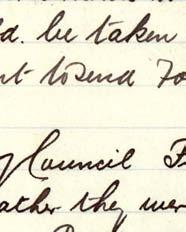 d. be taken
nt to send Fo
y Council F
ather they wer